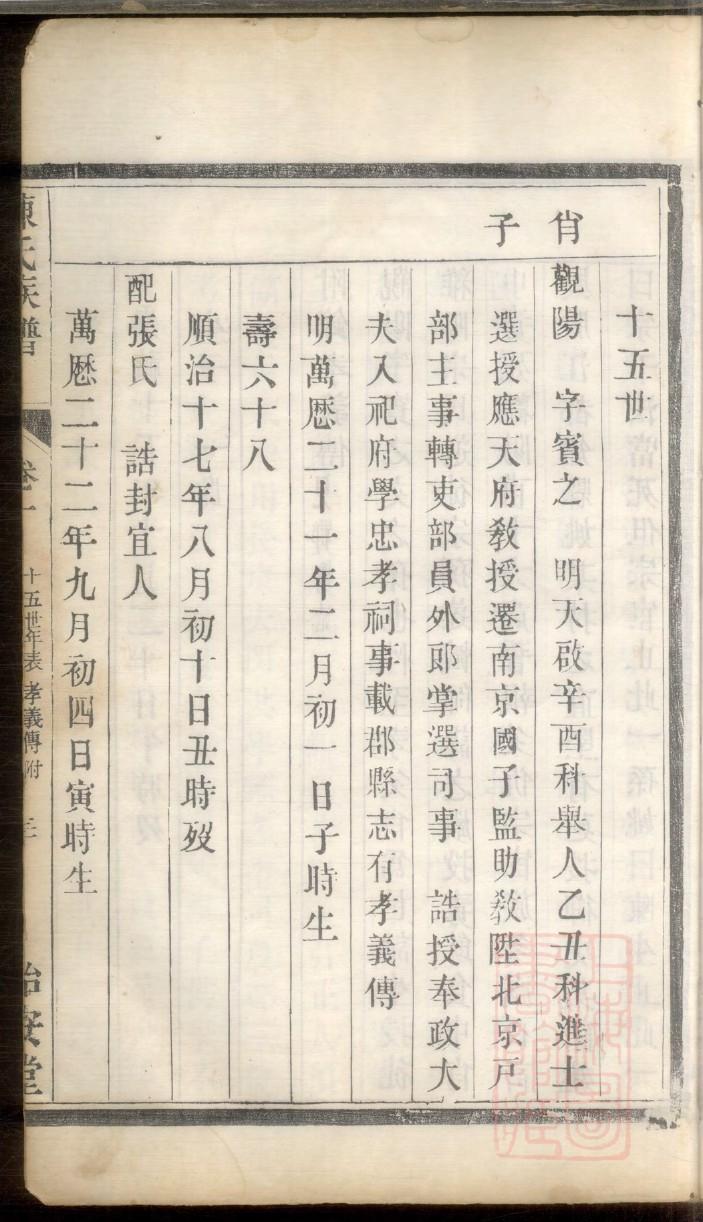 十五世
肖
觀陽 字賓之 明天啟辛酉科舉人乙丑科進士
子
選授應天府敎授遷南京國子監助敎陞北京戸
部主事轉吏部員外郎掌選司事 誥授奉政大
夫入祀府學忠孝祠事載郡縣志有孝義傳
明萬厯二十一年二月初一日子時生
壽六十八
順治十七年八月初十日丑時歿
配張氏 誥封宜人
萬厯二十二年九月初四日寅時生
陳氏族譜 卷一 十五世年表 孝義傳附 三 治安堂